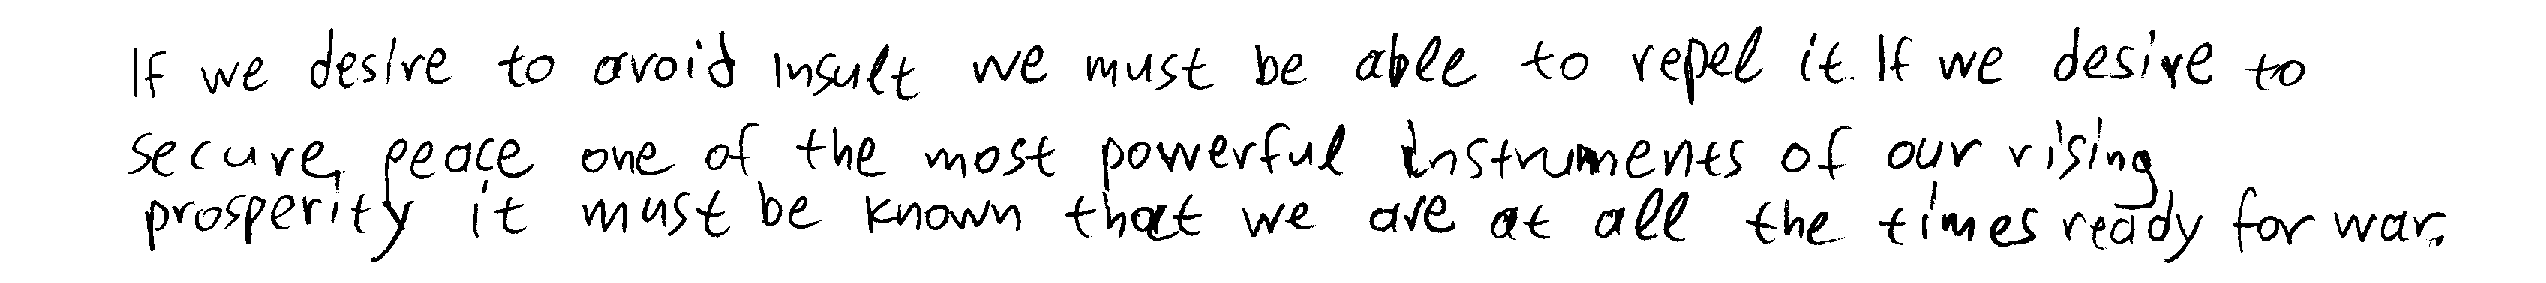 If we desire to avoid insult we must be able to repel it. If we desire to
secure peace one of the most powerful instruments of our rising
prosperity it must be known that we are at all the times ready for war.